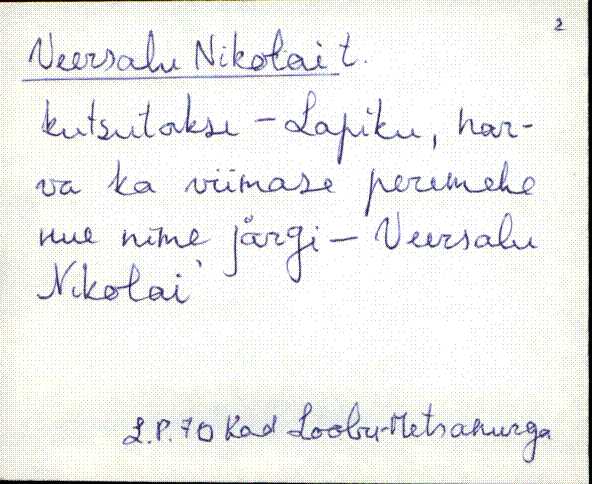 2
Veersalu Nikolai t.
kutsutakse - Lapiku, har-
va ka viimase peremehe
nime järgi - Veersalu
Nikolai
L.P. 70 Kad Loobu-Metsanurga